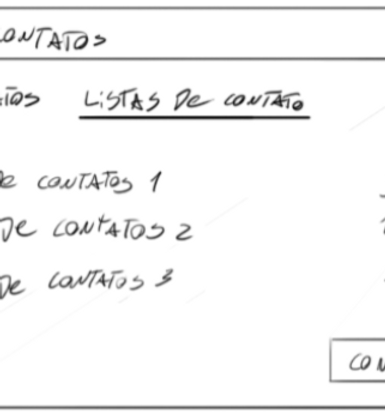 CONTATOS
LISTAS DE CONTATO
DE CONTATOS 1
DE CONTATOS 2
DE CONTATOS 3